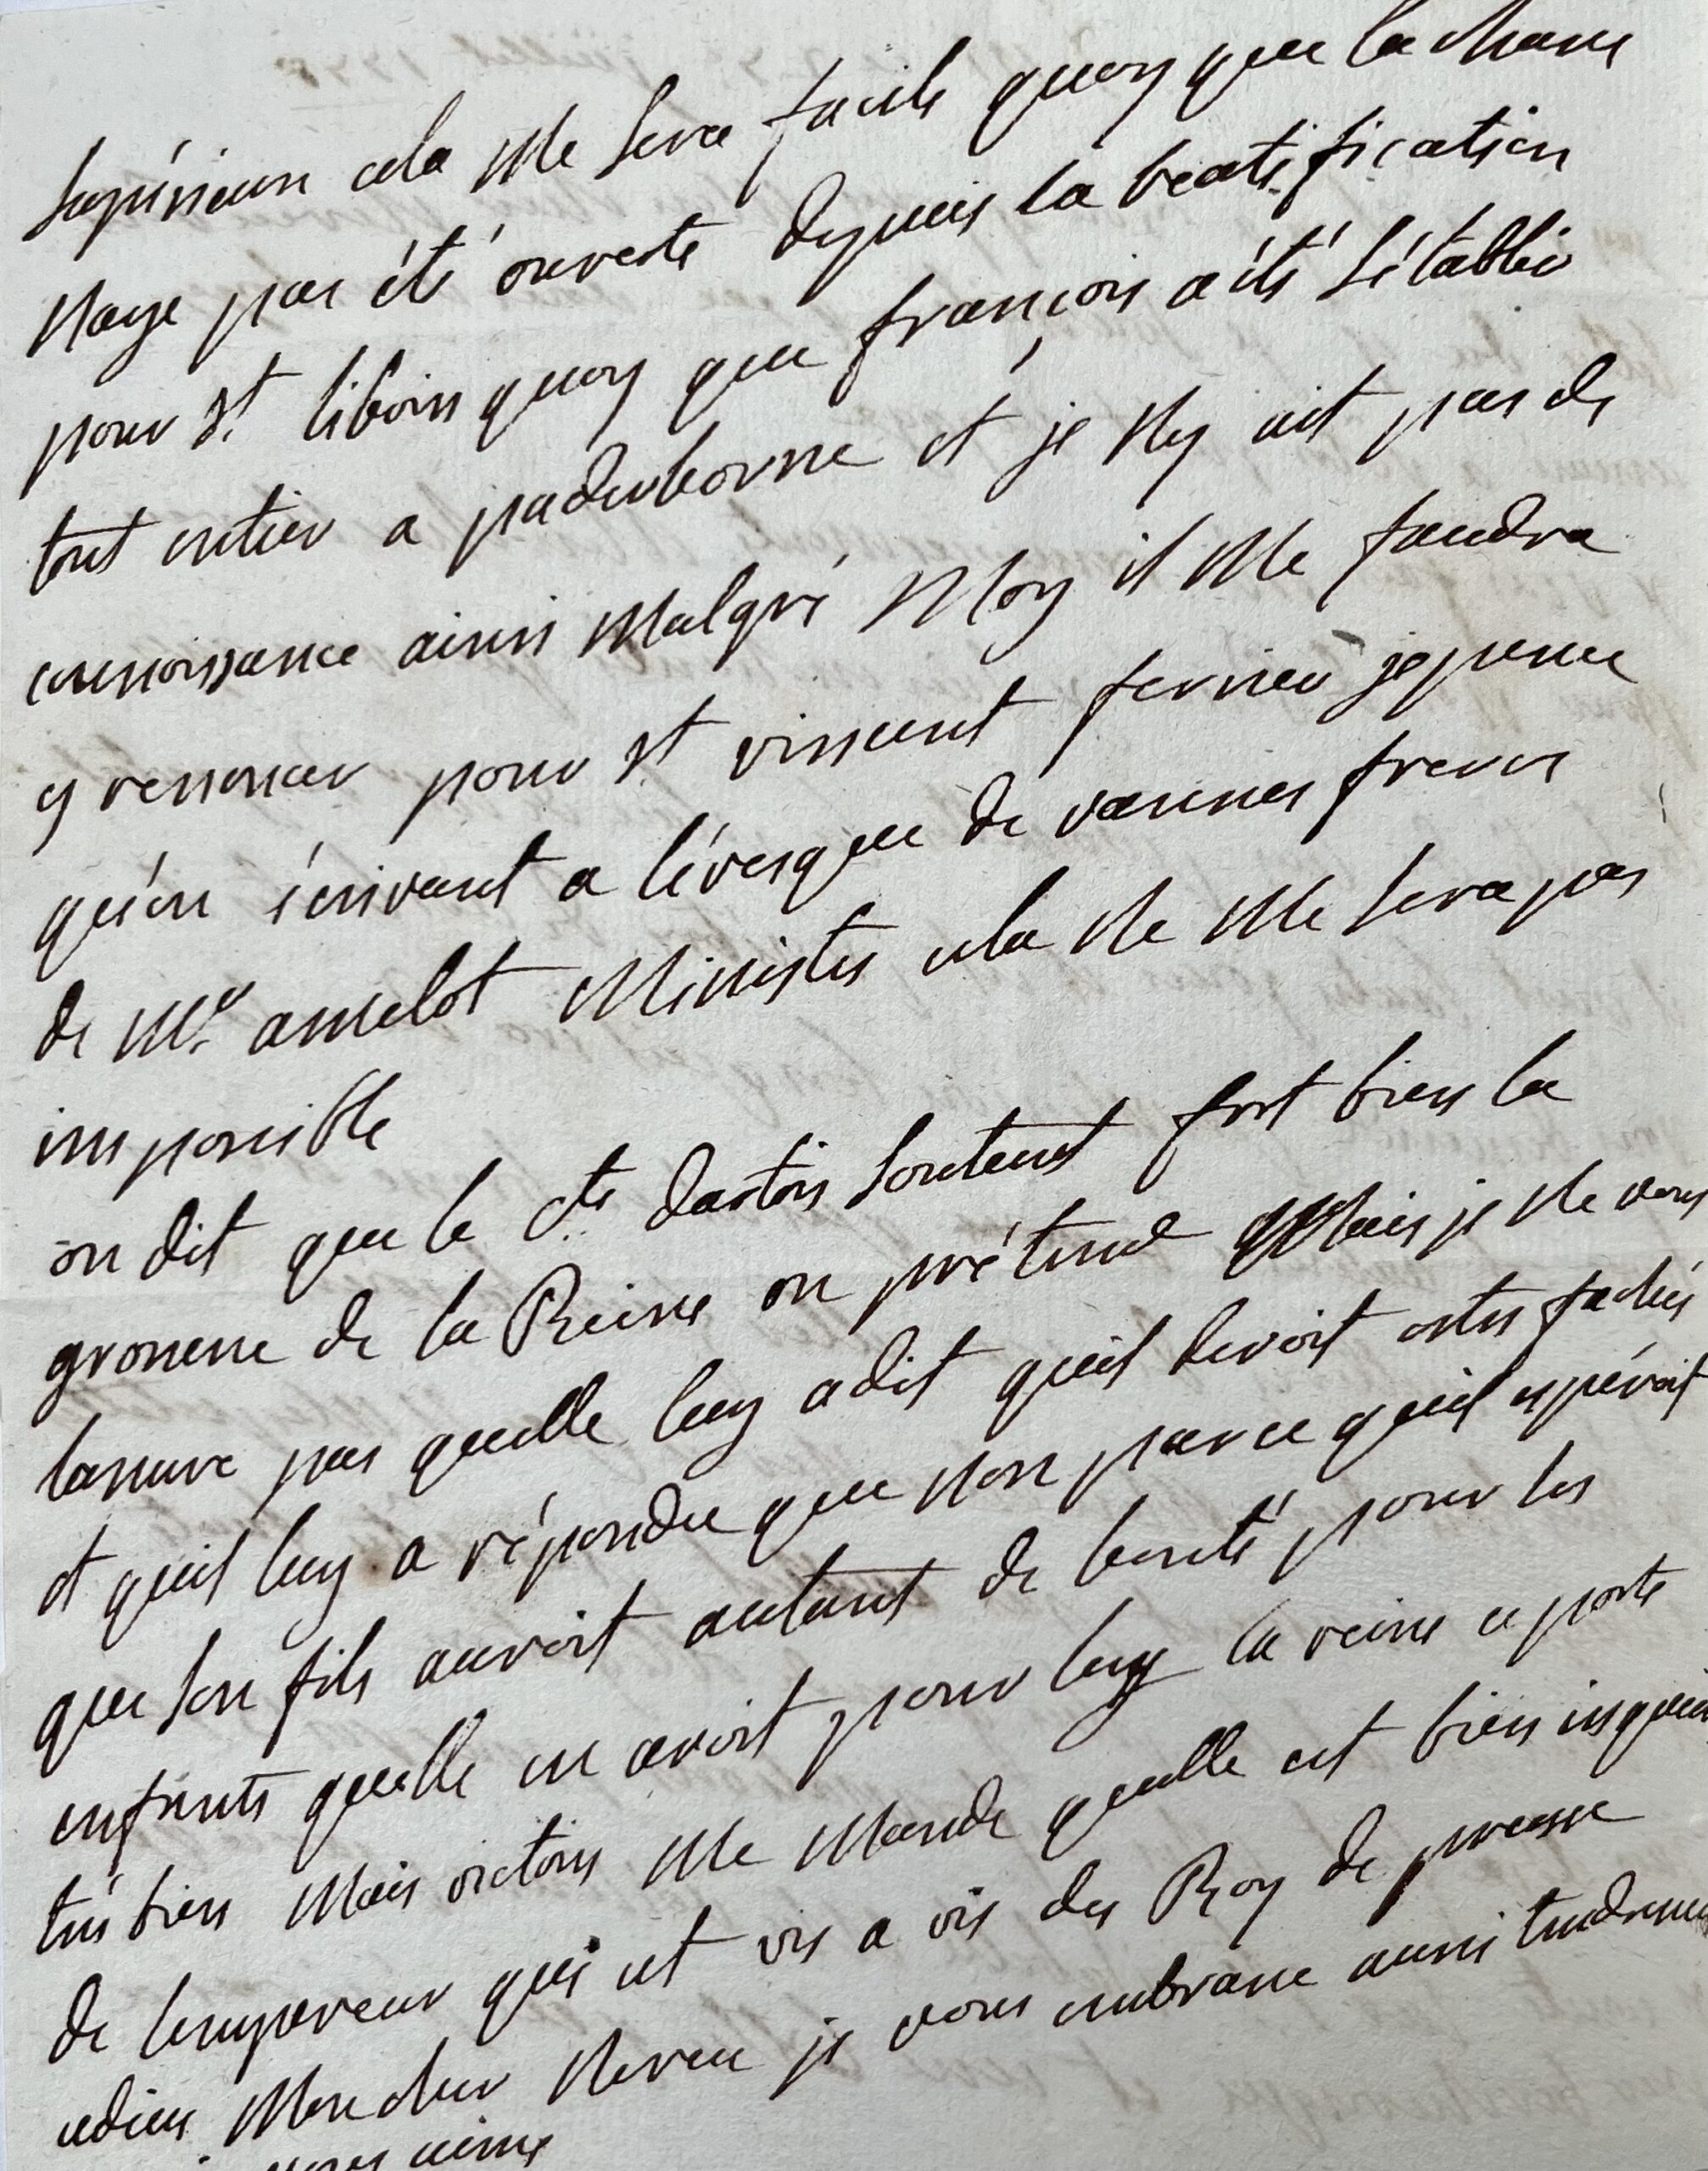 supérieure cela me sera facile quoy que la chasse
naye pas été ouverte depuis la beatification
pour st. liboire quoy que françois a été s'établir
tout entier a paderborne et je ny ait pas de
connoissance ainsi malgré moy il me faudra
y renoncer pour st vinsent ferrier je pense
qu'en écrivant a lévesque de vannes frere
de mr. amelot ministre cela ne me sera pas
impossible
on dit que le cte dartois soutient fort bien la
grossesse de la Reine on prétend mais je ne vous
lassure pas quelle luy a dit quil devoit estre faché
et quil luy a répondu que non parce quil espéroit
que son fils auroit autant de bonté pour les
enfents quelle en avoit pour luy la reine ce porte
très bien mais victoire me mande quelle est bien inquiète
de lempereur qui est vis a vis du Roy de prusse
adieu mon cher neveu je vous embrasse aussi tendrement
vous aime